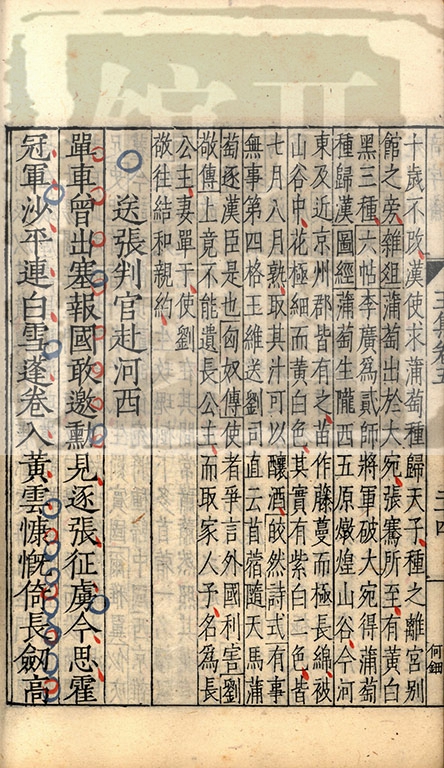 十歲不敗漢使求蒲萄種歸天子種之離宮別
館之旁雜俎蒲萄出於大宛張騫所至有黄白
黑三種六帖李廣為貳師將軍破大宛得蒲萄
種歸漢圖經蒲萄生隴西五原燉煌山谷今河
東及近京州郡皆有之苗作藤蔓而極長綿被
山谷中花極細而黄白色其實有紫白二色皆
七月八月熟取其汁可以釀酒皎然詩式有事
無事第四格王維送劉司直云苜蓿隨天馬蒲
萄逐漢臣是也匈奴傳使者爭言外國利害劉
敬傳上竟不能遣長公主而取家人子名為長
公主妻單于使劉
敬往結和親約
送張判官赴河西
單車曾出塞報國敢邀勳見逐張征虜今思霍
冠軍沙平連白雪蓬卷入黄雲慷慨倚長劒高
何鈿